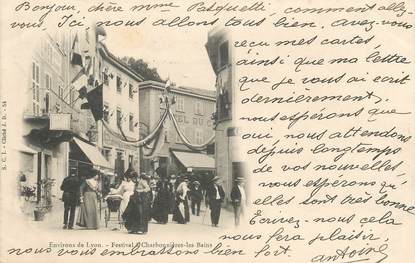 Bonjour, chère mme Paquelli, comment allez-
vous, Ici nous allons tous bien, avez-vous
reçu mes cartes,
ainsi que ma lettre
que je vous ai écrit
dernièrement,
nous espérons que
oui nous attendons
depuis longtemps
de vos nouvelles,
nous espérons qu'
elles sont très bonne
Ecrivez-nous cela
nous fera plaisir,
nous vous embrassons bien fort. antoine
S. C. I. - Cliché J. D. - 54
HOTEL DU
Environs de Lyon. - Festival Charbonnières-les Bains